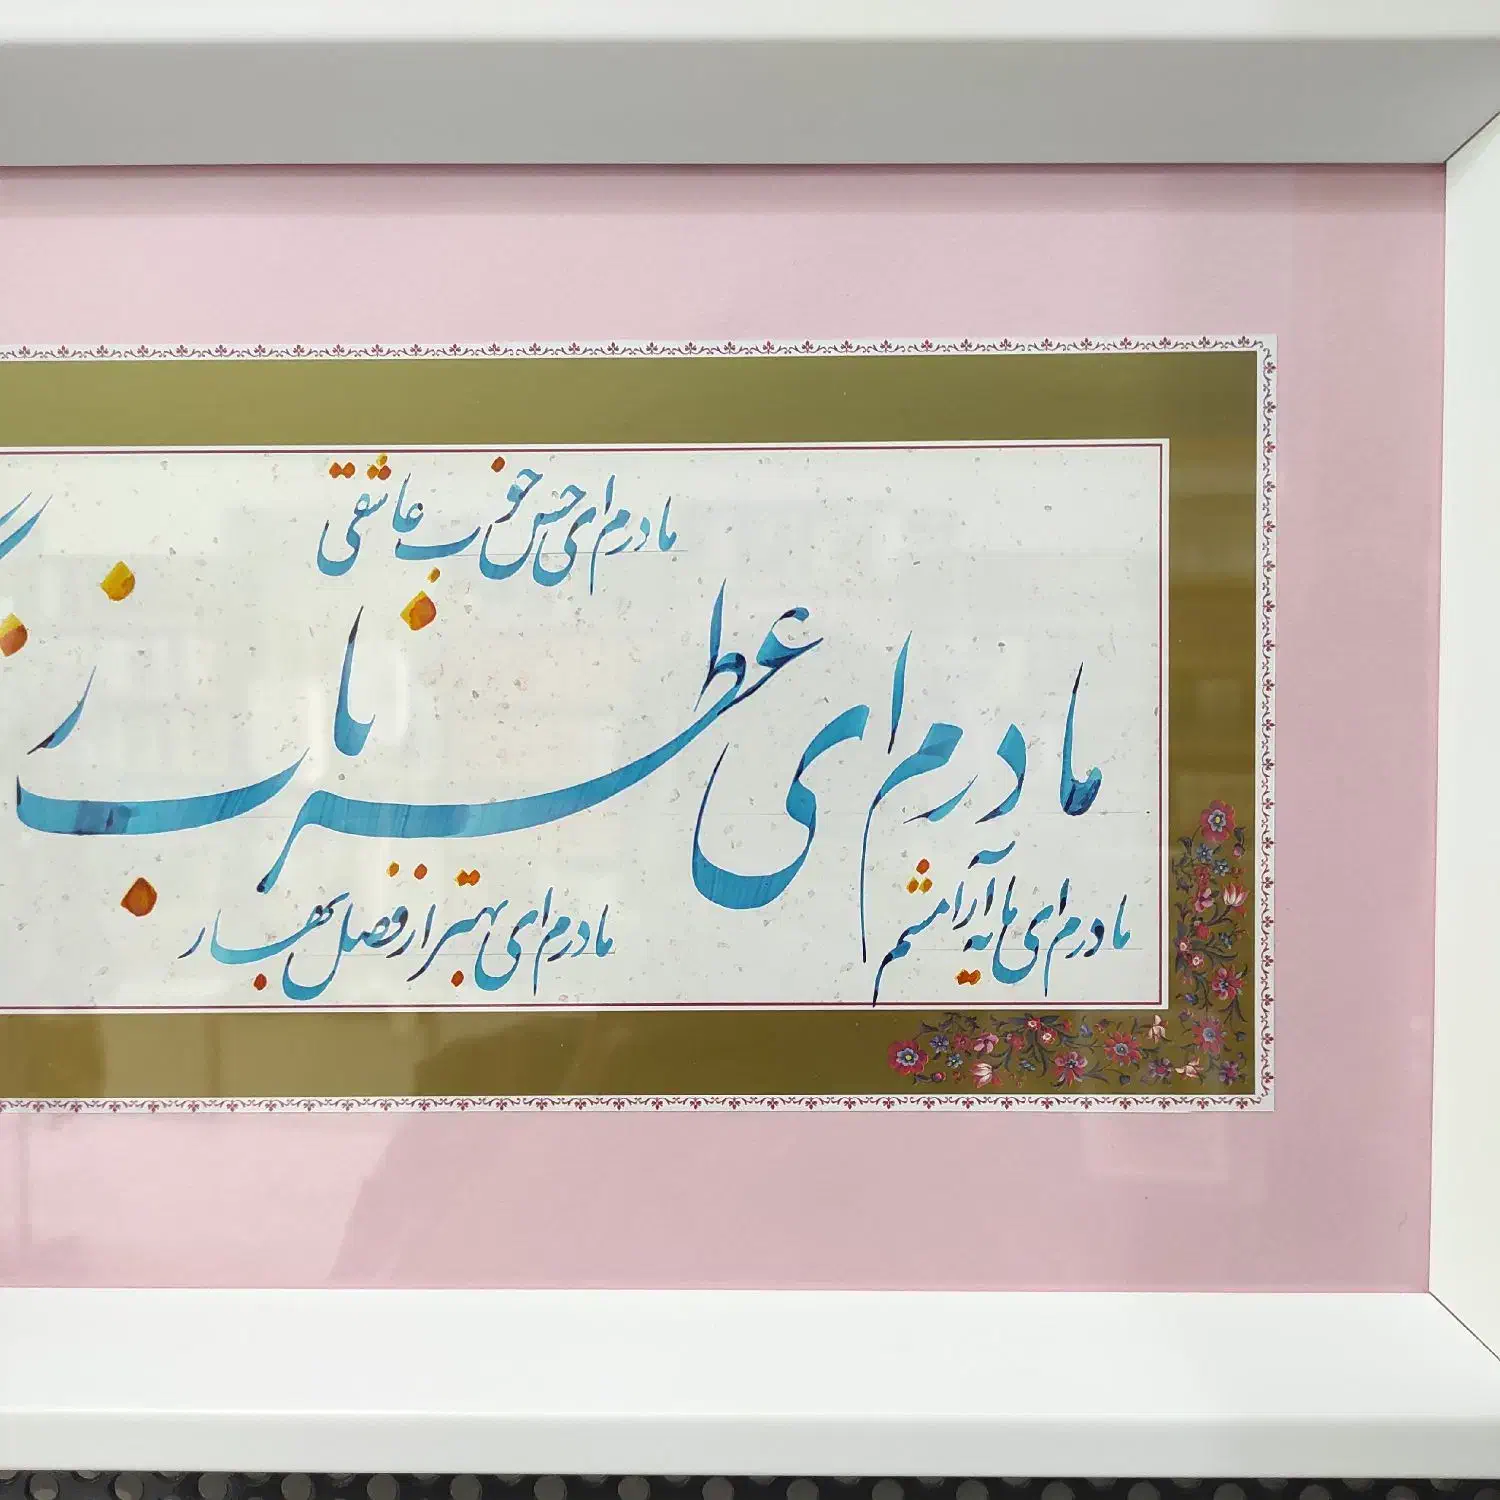 مادرم ای حس خوب عاشقی
مادرم ای عطر ناب ز
مادرم ای مایه آرامشم
مادرم ای بهتر از فصل بهار